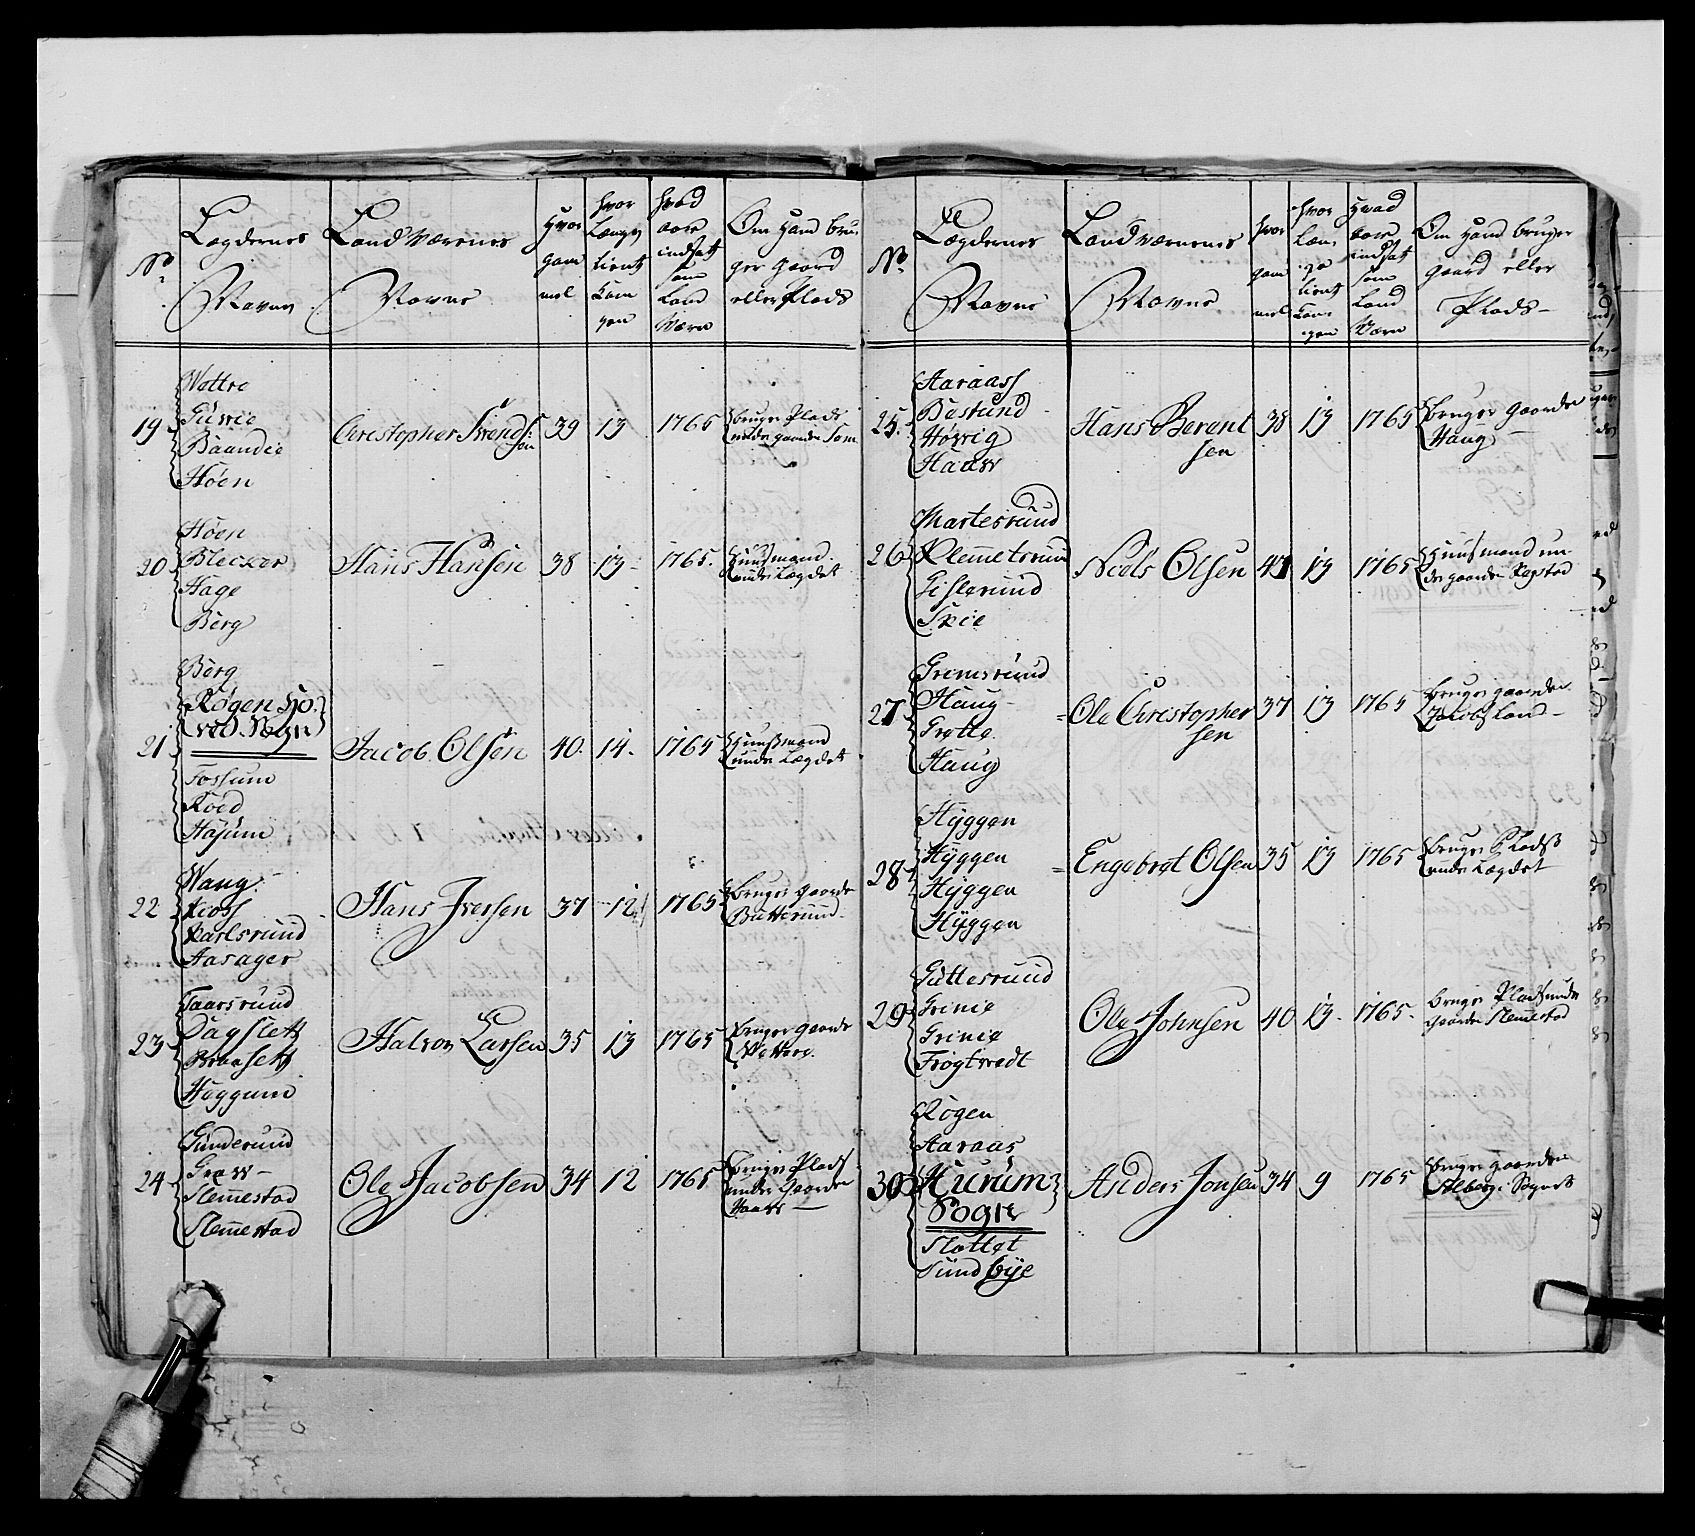 No.
Lægdernes
Navne
Land Værnes
Navne
Hvor
gam
mel
hvor
Længe
tient
Kon
gen
hvad
aar
indsatt
som
Land
Værn
Om Hand bru
ger gaard
eller Plads
19
Wottre
Gürrie
Baandie
Høen
Christopher Svends
søn
39
13
1765
bruger Plads
under gaarden
20
Høen
Blecker
Hage
Berg
Hans Hansen
38
13
1765.
Huusmand
under Lægdet
21
Berg
Røgen Ho
ved Sogn
Fossum
Koed
Hajum
Jacob Olsen
40.
14.
1765
Huusmand
under Lægdet
22
Wang
Kioss
Karlsruud
Aasager
Hans Iversen
37
12
1765
bruger gaarden
Butteruud
23
Taarsruud
Dagslett
Braasett
Høggum
Halvor Larsen
35
13
1765
bruger gaarde
Wottere.
24
Gunderuud
Graw
Slemestad
Slemestad
Ole Jacobsen
34
12
1765
bruger Plads
under Gaarden
Haaw
No.
Lægdernes
Navne
Landværnenes
Navne
hvor
gam
mel
hvor
Læn
ge
tient
Kon
gen
Hvad
aar
indsat
som
Land
Værn
Om Hand bruger
gaard eller
Plads
25.
Aaraass
Bastund
Høvrig
Haaw
Hans Berent
sen
38
13
1765
bruger Gaarden
Haug
26
Martesruud
Klemmetsruud
Gislerund
Skie
Niels Olsen
41
13
1765
Huusmand un
der gaarden
27
Gremsruud
Haug
Grøtte
Haug
Ole Christopher
sen
37
13
1765
bruger gaarden
Jacobsland
28
Hyggen
Hyggen
Hyggen
Hyggen
Engebret Olsen
35
13
1765
bruger Plads
under Lægdet
29
Guttesruud
Grinie
Grinie
Frøgtvedt
Ole Johnsen
40
13.
1765.
bruger Plads under
Gaarden Slemestad
30
Røgen
Aaraas
Hurum
Sogn
Slottet
Sundbye
Anders Jonsen
34
9
1765
bruger gaarden